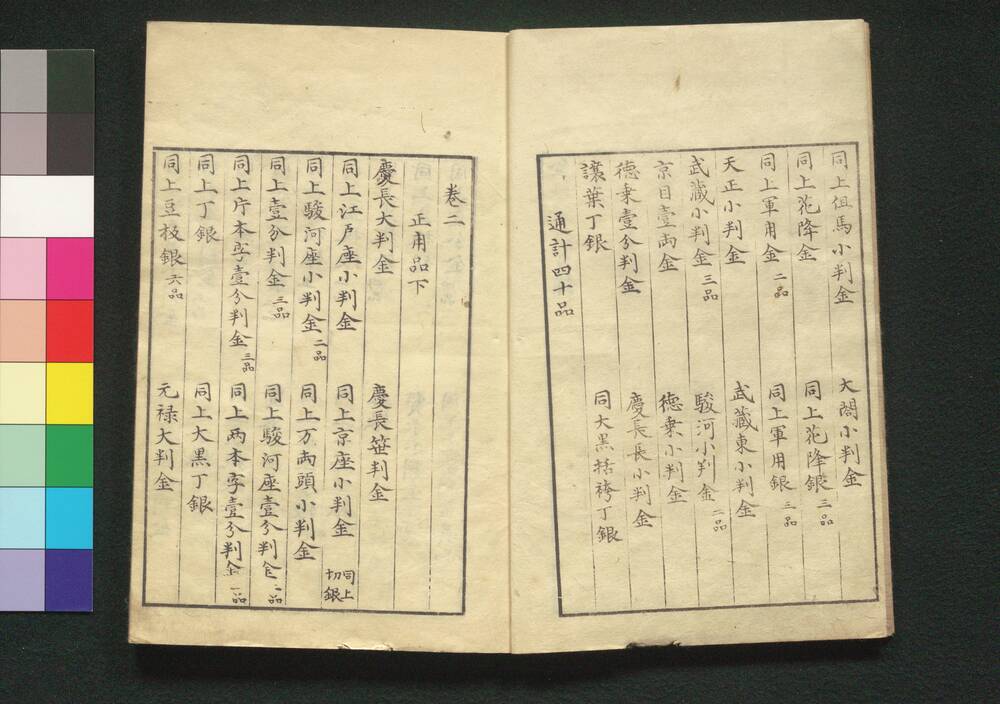 同上但馬小判金 大閤小判金
同上花降金 同上花降銀 三品
同上軍用金 二品 同上軍用銀 三品
天正小判金 武蔵東小判金
武蔵小判金 三品 駿河小判金 二品
京目壹両金 徳乗小判金
徳乗壹分判金 慶長長小判金
譲葉丁銀 同大黒括袴丁銀
通計四十品
巻二
正用品下
慶長大判金 慶長笹判金
同上江戸座小判金 同上京座小判金 同上切銀
同上駿河座小判金 二品 同上万両頭小判金
同上壹分判金 三品 同上駿河座壹分判金 二品
同上片本字壹分判金 三品 同上両本字壹分判金 二品
同上丁銀 同上大黒丁銀
同上豆板銀 六品 元禄大判金